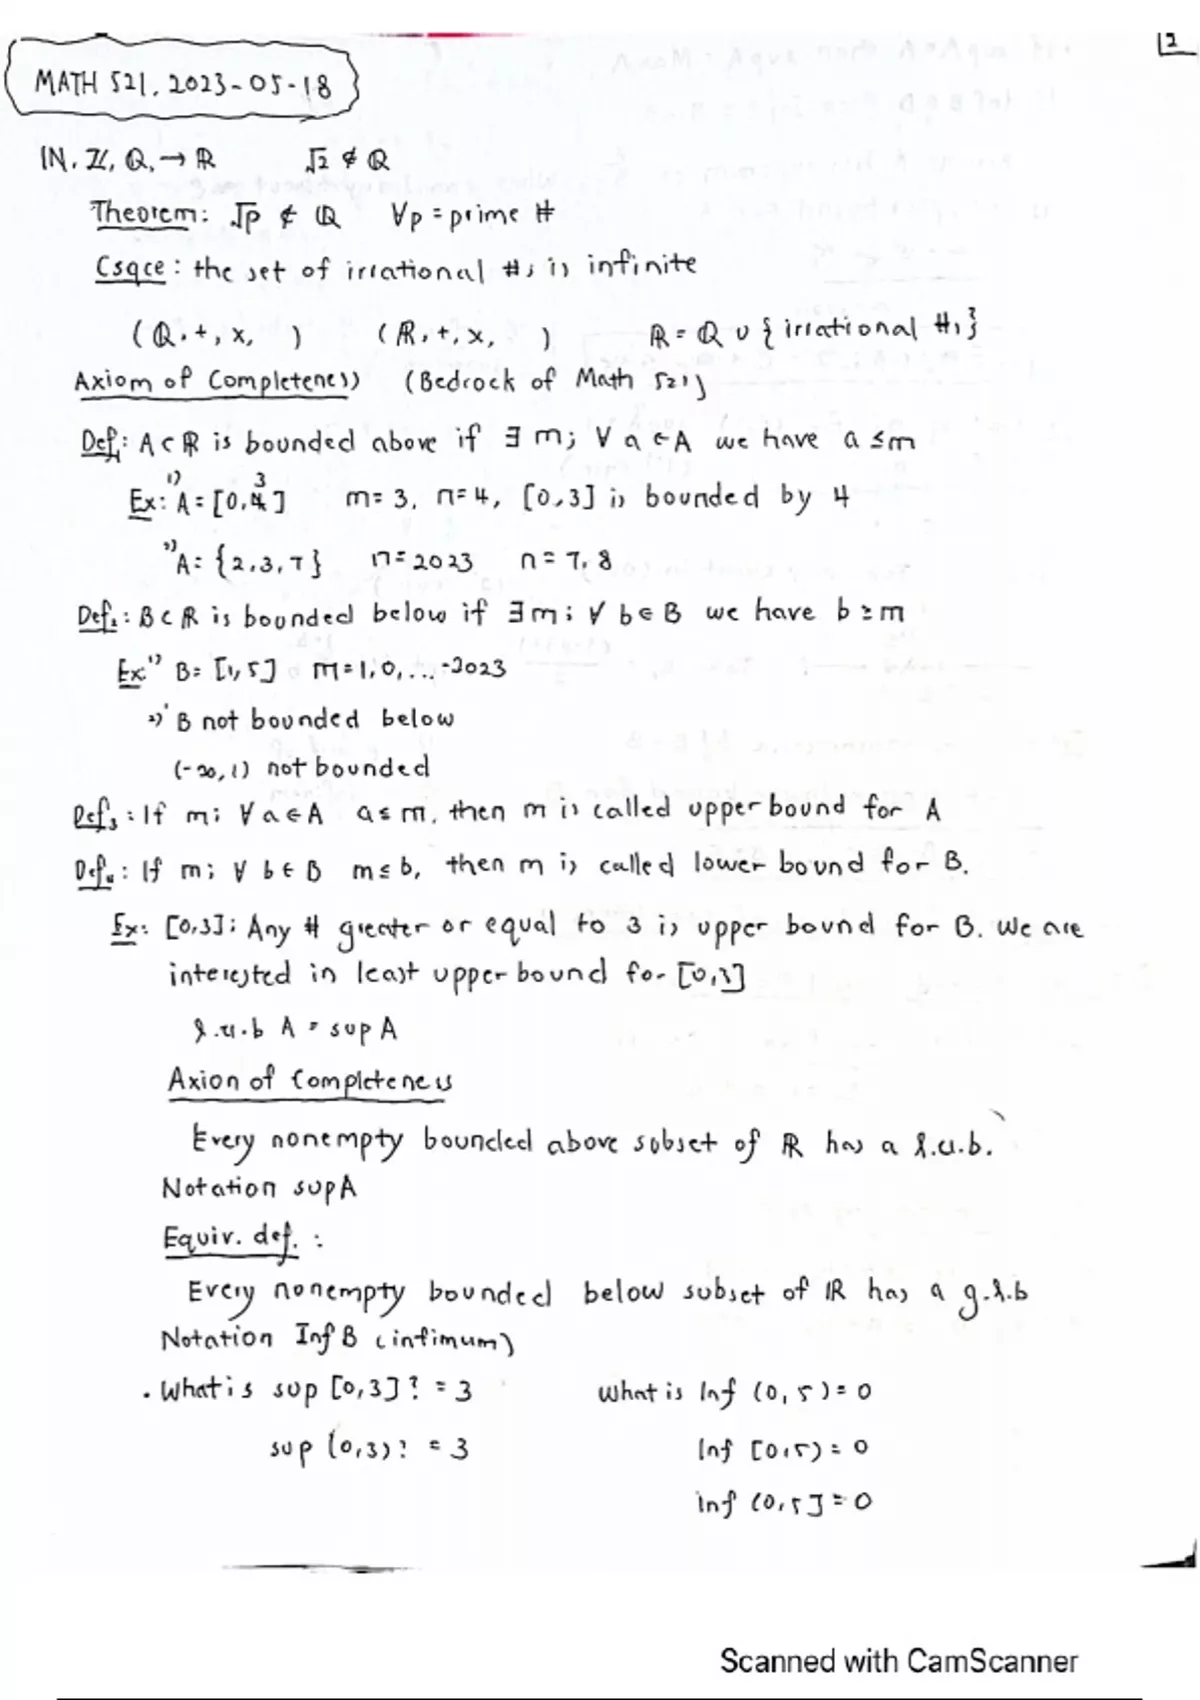 12
MATH 521, 2023-05-18
ℕ, ℤ, ℚ, → ℝ √2 ∉ ℚ
Theorem: √p ∉ ℚ ∀p = prime #
Csqce: the set of irrational #s is infinite
(ℚ, +, x, ) (ℝ, +, x, ) ℝ = ℚ ∪ {irrational #s}
Axiom of Completeness (Bedrock of Math 521)
Def₁: A ⊂ ℝ is bounded above if ∃ m; ∀ a ∈ A we have a ≤ m
Ex: 1) A = [0, 3] m = 3, n = 4, [0,3] is bounded by 4
2) A = {2,3,7} n = 2023 n = 7, 8
Def₂: B ⊂ ℝ is bounded below if ∃ m; ∀ b ∈ B we have b ≥ m
Ex 1) B = [1,5] m = 1, 0, ... -2023
2) B not bounded below
(-∞, 1) not bounded
Def₃: If m; ∀ a ∈ A a ≤ m, then m is called upper bound for A
Def₄: If m; ∀ b ∈ B m ≤ b, then m is called lower bound for B.
Ex: [0,3]; Any # greater or equal to 3 is upper bound for B. We are
interested in least upper bound for [0,3]
l.u.b A = sup A
Axion of Completeness
Every nonempty bounded above subset of ℝ has a l.u.b.
Notation supA
Equiv. def. :
Every nonempty bounded below subset of ℝ has a g.l.b
Notation Inf B (infimum)
. What is sup [0,3]? = 3 what is Inf (0, 5) = 0
sup (0,3)? = 3 Inf [0,5) = 0
inf (0,5] = 0
Scanned with CamScanner